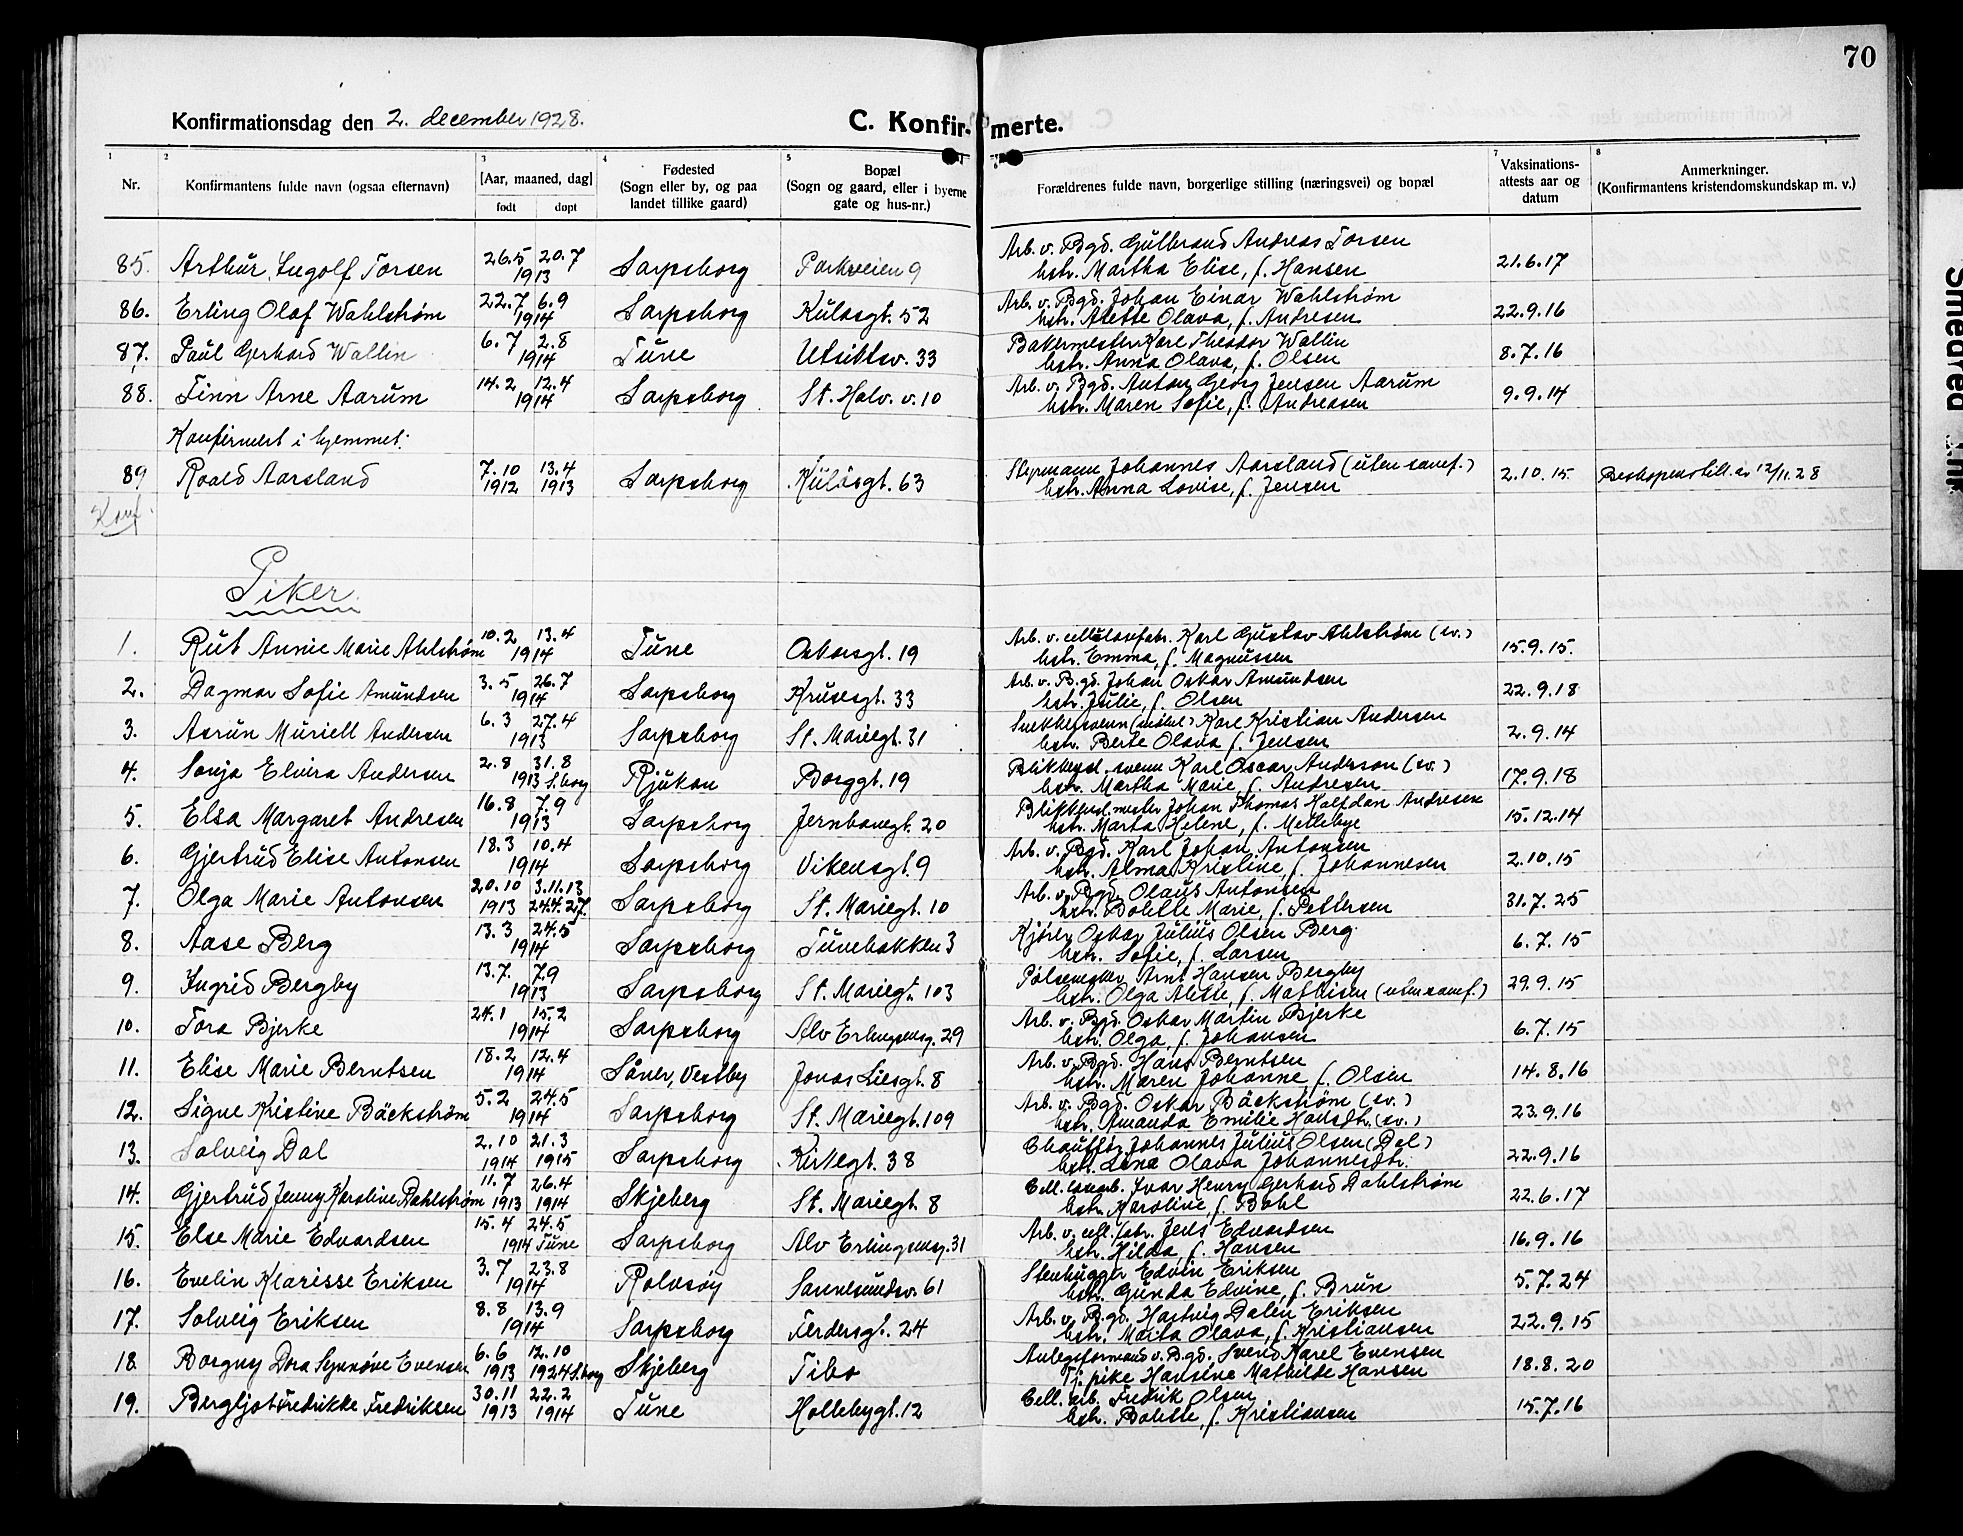 70
Konfirmationsdag den 2. december 1928.
C. Konfirmerte.
1 2 3 4 5 6 7 8
Nr. Konfirmantens fulde navn (ogsaa efternavn) [Aar, maaned, dag] født døpt Fødested (Sogn eller by, og paa landet tillike gaard) Bopæl (Sogn og gaard, eller i byerne gate og hus-nr.) Forældrenes fulde navn, borgerlige stilling (næringsvei) og bopæl Vaksinationsattests aar og datum Anmerkninger. (Konfirmantens kristendomskundskap m. v.)
85. Arthur Ingolf Torsen 26.5 20.7 1913 Sarpsborg Parkveien 9 Arb. v. Bgd. Gulbrand Andreas Torsen hstr. Martha Elise, f. Hansen 21.6.17
86. Erling Olaf Wahlstrøm 22.7 6.9 1914 Sarpsborg Kulåsgt. 52 Arb. v. Bgd. Johan Einar Wahlstrøm hstr. Alette Olava, f. Andresen 22.9.16
87. Paul Gerhard Wallin 6.7 2.8 1914 Tune Utsiktsv. 33 Bakermester Karl Theodor Wallin hstr. Anna Olava, f. Olsen 8.7.16
88. Finn Arne Aarum 14.2 12.4 1914 Sarpsborg St. Halv. v. 10 Arb. v. Bgd. Anton Georg Jensen Aarum hstr. Maren Sofie, f. Andreasen 9.9.14
Konfirmert i hjemmet:
89 Roald Aarsland 7.10 1912 13.4 1913 Sarpsborg Kulåsgt. 63 Styrmann Johannes Aarsland (uten samf.) hstr. Anna Lovise, f. Jensen 2.10.15. Beskopens till. av 12/11.28
Konf.
Piker.
1. Rut Annie Marie Ahlstrøm 10.2 13.4 1914 Tune Oskarsgt. 19 Arb. v. cellulosefabr. Karl Gustav Ahlstrøm (sv.) hstr. Emma, f. Magnussen 15.9.15.
2. Dagmar Sofie Amundsen 3.5 26.7 1914 Sarpsborg Krusesgt. 33 Arb. v. Bgd. Johan Oskar Amundsen hstr. Julie, f. Olsen 22.9.18
3. Asrun Muriell Andersen 6.3 27.4 1913 Sarpsborg St. Mariegt. 31 Snekkersvenn (møbel) Karl Kristian Andersen hstr. Berte Olava f. Jensen 2.9.14
4. Sonja Elvira Andersen 2.8 31.8 1913 S.borg Rjukan Borggt. 19 Blikkensl. svenn Karl Oscar Anderson (sv.) hstr. Martha Marie, f. Andresen 17.9.18
5. Elsa Margaret Andresen 16.8 7.9 1913 Sarpsborg Jernbanegt. 20 Blikkensl. mester Johan Thomas Halfdan Andresen hstr. Marta Helene, f. Mellebye 15.12.14
6. Gjertrud Elise Antonsen 18.3 10.4 1914 Sarpsborg Vikensgt. 9 Arb. v. Bgd. Karl Johan Antonsen hstr. Alma Kristine, f. Johannesen 2.10.15
7. Olga Marie Antonsen 20.10 1913 3.11.13 24.4.27. Sarpsborg St. Mariegt. 10 Arb. v. Bgd. Olaus Antonsen hstr. Bolette Marie, f. Pettersen 31.7.25
8. Aase Berg 13.3 24.5 1914 Sarpsborg Tunebakken 3 Kjører Oskar Julius Olsen Berg hstr. Sofie, f. Larsen 6.7.15
9. Ingrid Bergby 13.7. 7.9 1913 Sarpsborg St. Mariegt. 103 Pølsemaker Arnt Hansen Bergby hstr. Olga Alette, f. Mathisen (uten samf.) 29.9.15
10. Tora Bjerke 24.1 15.2 1914 Sarpsborg Alv Erlingsensg. 29 Arb. v. Bgd. Oskar Martin Bjerke hstr. Olga, f. Johansen 6.7.15
11. Elise Marie Berntsen 18.2 12.4 1914 Såner, Vestby Jonas Liesgt. 8 Arb. v. Bgd. Hans Berntsen hstr. Maren Johanne, f. Olsen 14.8.16
12. Signe Kristine Bäckstrøm 5.2 24.5 1914 Sarpsborg St. Mariegt. 109 Arb. v. Bgd. Oskar Bäckstrøm (sv.) hstr. Amanda Emilie Hansdtr. (sv.) 23.9.16
13. Solveig Dal 2.10 1914 21.3 1915 Sarpsborg Kirkegt. 38 Chauffør Johannes Julius Olsen (Dal) hstr. Lina Olava Johannesdtr. 22.9.16
14. Gjertrud Jenny Karoline Dahlstrøm 11.7 1913 26.4 1914 Skjeberg St. Mariegt. 8 Cell. losarb. Ivar Henry Gerhard Dahlstrøm hstr. Karoline, f. Bøhl 22.6.17
15. Else Marie Edvardsen 15.4 24.5 1914 Tune Sarpsborg Alv Erlingsensg. 31 Arb. v. cell. fabr. Jens Edvardsen hstr. Hilda, f. Hansen 16.9.16
16. Evelin Klarisse Eriksen 3.7 23.8 1914 Rolvsøy Sannesundsv. 61 Stenhugger Edvin Eriksen hstr. Gunda Edvine, f. Brun 5.7.24
17. Solveig Eriksen 8.8 13.9 1914 Sarpsborg Ferdersgt. 24 Arb. v. Bgd. Hartvig Dalen Eriksen hstr. Marta Olava, f. Kristiansen 22.9.15
18 Borgny Dora Synnøve Evensen 6.6 1913 12.10 1924 S.borg Skjeberg Tibo Anlegsformand v. Bgd. Svend Karel Evensen Tj. pike Hansine Mathilde Hansen 18.8.20
19. Bergljot Fredrikke Fredriksen 30.11 1913 22.2 1914 Tune Hollebygt. 12 Cell. arb. Fredrik Olsen hstr. Bolette, f. Kristiansen 15.7.16